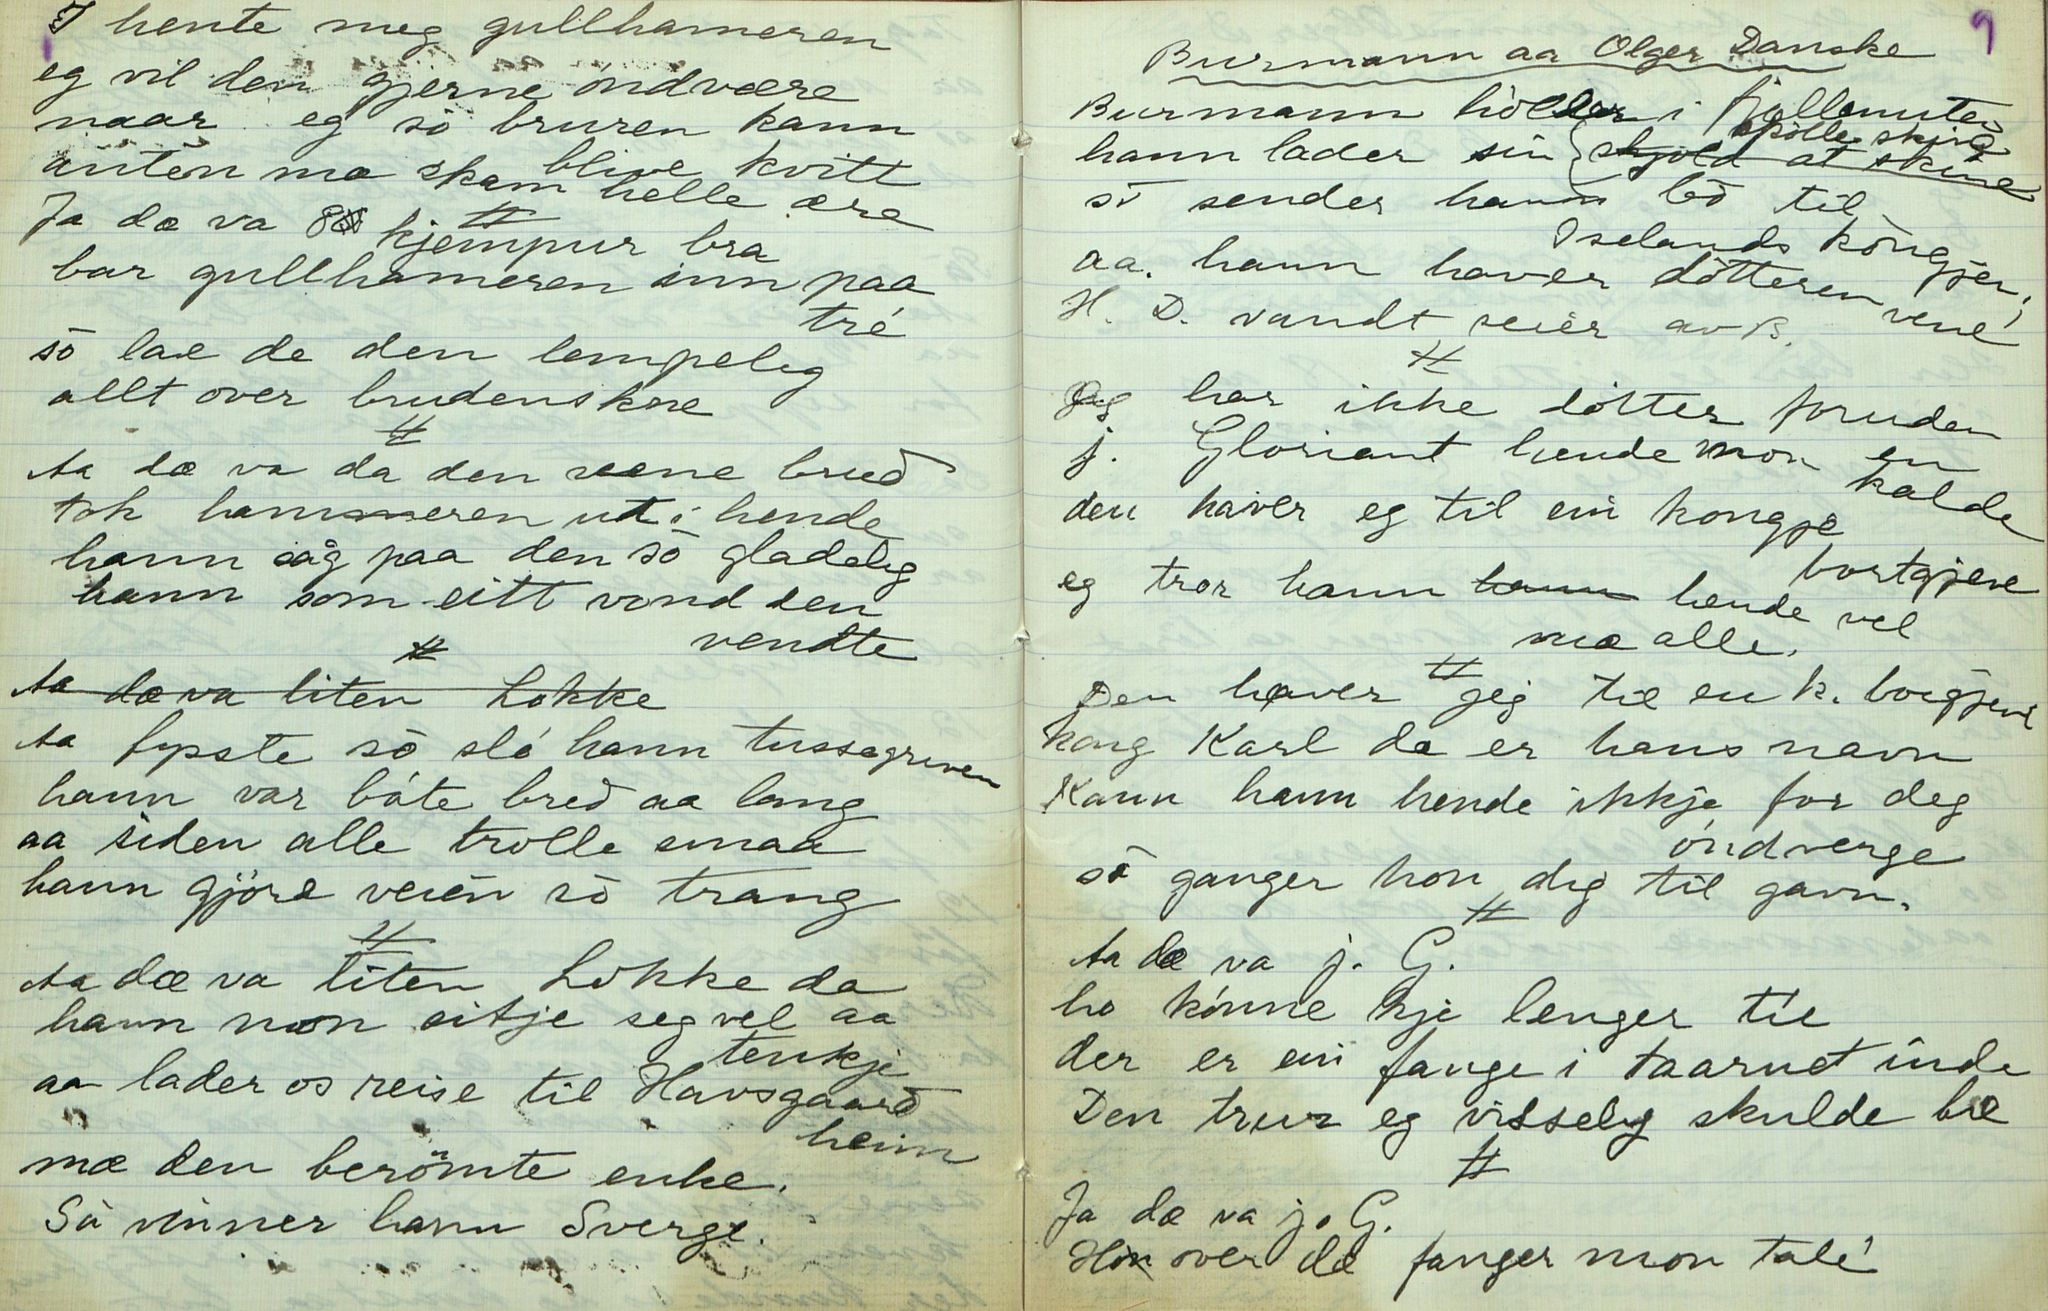 I hente meg gullhameren
eg vil den gjerne ondvære
naar eg sö bruren kann
blive kvitt
anten mæ skam helle ære
#
Ja dæ va 8 kjempur bra
bar gullhameren inn paa
tré
sö lae de den lempeleg
allt over brudens kne
#
Aa dæ va da den væne brud
tok hammeren ut i hende
hann såg paa den sö gladeleg
hann som eitt vond den
vendte
#
Aa dæ va liten Lokke
Aa fyste sö sló hann tussegreven
hann var báte bred aa lang
aa siden alle trolle smaa
hann gjöre veien sö trang
#
Aa dæ va liten Lokke da
hann mon sitje seg vel aa
tenkje
aa lader os reise til Havsgaard
heim
mæ den berömte enke.
Så vinner hann Sverge.
9
Burmann aa Olger Danske
Burmann holder i fjellenuten
hann lader sin skjold at skine
spölle skjine
sö sender hann bö til
Iselands kongjen,
aa. hann haver dötteren vene
H. D. vandt seier av B.
#
Jeg har ikke dötter foruden en
j. Gloriant hende mon
kalde
den haver eg til ein kongje
bortgjeve
eg tror hann hann hende vel
mæ alle.
#
Den haver jeg til en k. borgjeve
kong Karl da er hans navn
Kann hann hende ikkje for deg
óndverge
sö ganger hon dig til gavn.
#
Aa dæ va j. G.
ho kónne kje lenger tie
der er ein fange i taarnet inde
Den trur eg visseleg skulde bie
#
Ja dæ va j. G.
Hon over de fanger mon tale